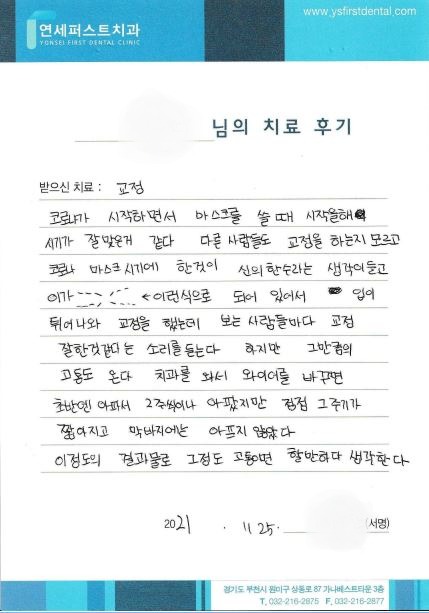 www.ysfirstdental.com
연세퍼스트치과
YONSEI FIRST DENTAL CLINIC
님의 치료 후기
받으신 치료 : 교정
코로나가 시작하면서 마스크를 쓸 때 시작을해
시기가 잘맞은거 같다 다른 사람들도 교정을 하는지 모르고
코로나 마스크 시기에 한것이 신의 한수라는 생각이 들고
이가 ← 이런식으로 되어 있어서 입이
튀어나와 교정을 했는데 보는 사람들마다 교정
잘한것같다는 소리를 듣는다 하지만 그만큼의
고통도 온다 치과를 와서 와이어를 바꾸면
초반엔 아파서 2주씩이나 아팠지만 점점 그 주기가
짧아지고 막바지에는 아프지 않았다
이정도의 결과물로 그정도 고통이면 할만하다 생각한다
2021 . 11 25 . (서명)
경기도 부천시 원미구 상동로 87 가나베스트타운 3층
T. 032-216-2875 F. 032-216-2877